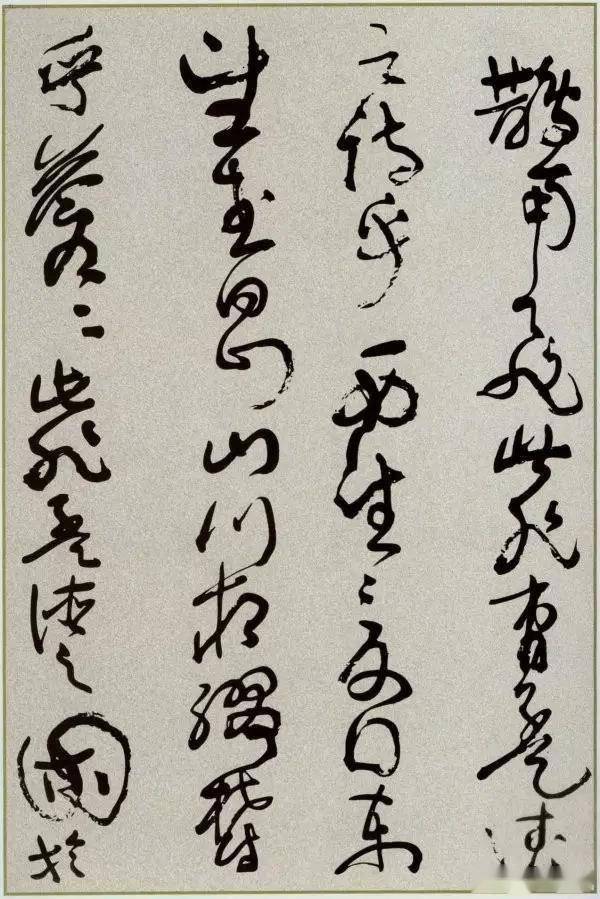 鵲南飛此非曹孟德
之詩乎西望夏口東
望武昌山川相繆鬱
乎蒼々此非孟德之困於